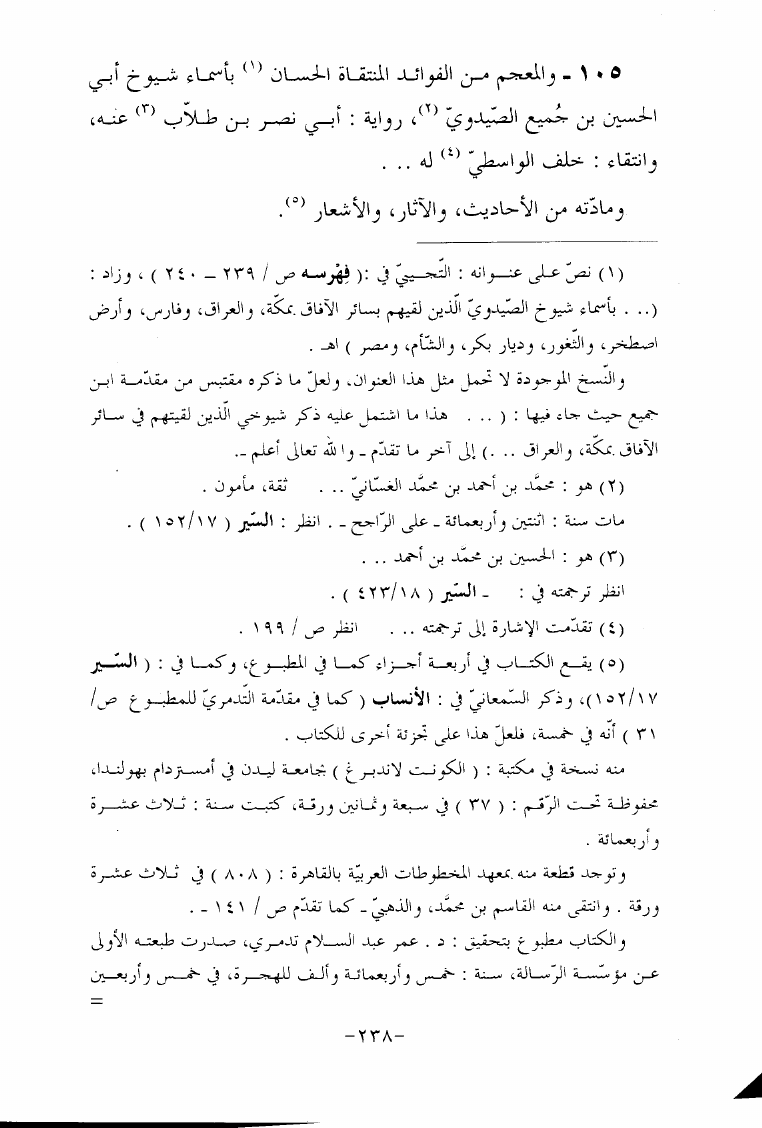 ١٠٥ - والمعجم من الفوائد المنتقاة الحسان (١) بأسماء شيوخ أبي
الحسين بن جُميع الصّيدويّ (٢)، رواية : أبي نصر بن طلاّب (٣) عنه،
وانتقاء : خلف الواسطيّ (٤) له ...
ومادّته من الأحاديث، والآثار، والأشعار (٥).
(١) نصّ على عنوانه : التّجيبيّ في :( فِهْرسه ص / ٢٣٩ - ٢٤٠ ) ، وزاد :
(... بأسماء شيوخ الصّيدويّ الّذين لقيهم بسائر الآفاق بمكّة، والعراق، وفارس، وأرض
اصطخر، والثّغور، وديار بكر، والشّأم، ومصر ) اهـ .
والنّسخ الموجودة لا تحمل مثل هذا العنوان، ولعلّ ما ذكره مقتبس من مقدّمة ابن
جميع حيث جاء فيها : ( ... هذا ما اشتمل عليه ذكر شيوخي الّذين لقيتهم في سائر
الآفاق بمكّة، والعراق ...) إلى آخر ما تقدّم - والله تعالى أعلم -.
(٢) هو : محمَّد بن أحمد بن محمَّد الغسّانيّ ... ثقة، مأمون .
مات سنة : اثنتين وأربعمائة - على الرّاجح - . انظر : السّير ( ١٥٢/١٧ ) .
(٣) هو : الحسين بن محمَّد بن أحمد ...
انظر ترجمته في : - السّير ( ٤٢٣/١٨ ) .
(٤) تقدّمت الإشارة إلى ترجمته ... انظر ص / ١٩٩ .
(٥) يقع الكتاب في أربعة أجزاء كما في المطبوع، وكما في : ( السّير
١٥٢/١٧)، وذكر السّمعانيّ في : الأنساب ( كما في مقدّمة التّدمريّ للمطبوع ص/
٣١ ) أنّه في خمسة، فلعلّ هذا على تجزئة أخرى للكتاب .
منه نسخة في مكتبة : ( الكونت لاندبرغ ) بجامعة ليدن في أمستردام بهولندا،
محفوظة تحت الرّقم : ( ٣٧ ) في سبعة وثمانين ورقة، كتبت سنة : ثلاث عشرة
وأربعمائة .
وتوجد قطعة منه بمعهد المخطوطات العربيّة بالقاهرة : ( ٨٠٨ ) في ثلاث عشرة
ورقة . وانتقى منه القاسم بن محمَّد، والذهبيّ - كما تقدّم ص / ١٤١ - .
والكتاب مطبوع بتحقيق : د . عمر عبد السلام تدمري، صدرت طبعته الأولى
عن مؤسّسة الرّسالة، سنة : خمس وأربعمائة وألف للهجرة، في خمس وأربعين
=
-٢٣٨-